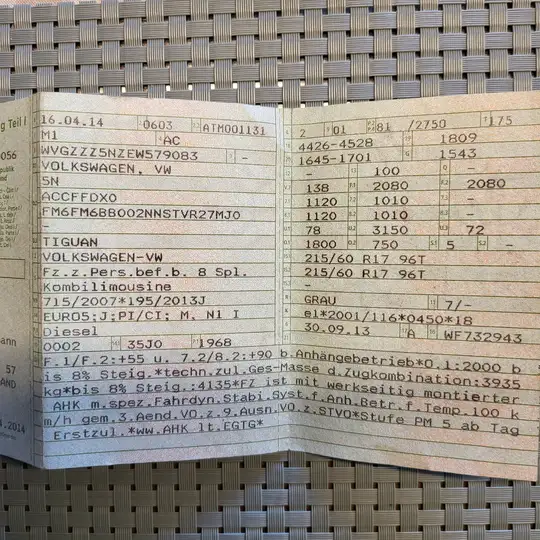 g Teil I
0056
57
AND
4.2014
16.04.14 0603 ATM001131
M1 AC
WVGZZZ5NZEW579083 -
VOLKSWAGEN, VW
5N
ACCFFDX0
FM6FM6BB002NNSTVR27MJ0
-
TIGUAN
VOLKSWAGEN-VW
Fz.z.Pers.bef.b. 8 Spl.
Kombilimousine
715/2007*195/2013J
EURO5;J;PI/CI; M, N1 I
Diesel
0002 35J0 1968
2 01 81 /2750 175
4426-4528 1809
1645-1701 1543
- 100 -
138 2080 2080
1120 1010 -
1120 1010 -
78 3150 72
1800 750 5 -
215/60 R17 96T
215/60 R17 96T
-
-
GRAU 7/-
e1*2001/116*0450*18
30.09.13 A WF732943
F.1/F.2:+55 u. 7.2/8.2:+90 b.Anhängebetrieb*O.1:2000 b
is 8% Steig.*techn.zul.Ges-Masse d.Zugkombination:3935
kg*bis 8% Steig.:4135*FZ ist mit werkseitig montierter
AHK m.spez.Fahrdyn.Stabi.Syst.f.Anh.Betr.f.Temp.100 k
m/h gem.3.Aend.VO.z.9.Ausn.VO.z.STVO*Stufe PM 5 ab Tag
Erstzul.*ww.AHK lt.EGTG*